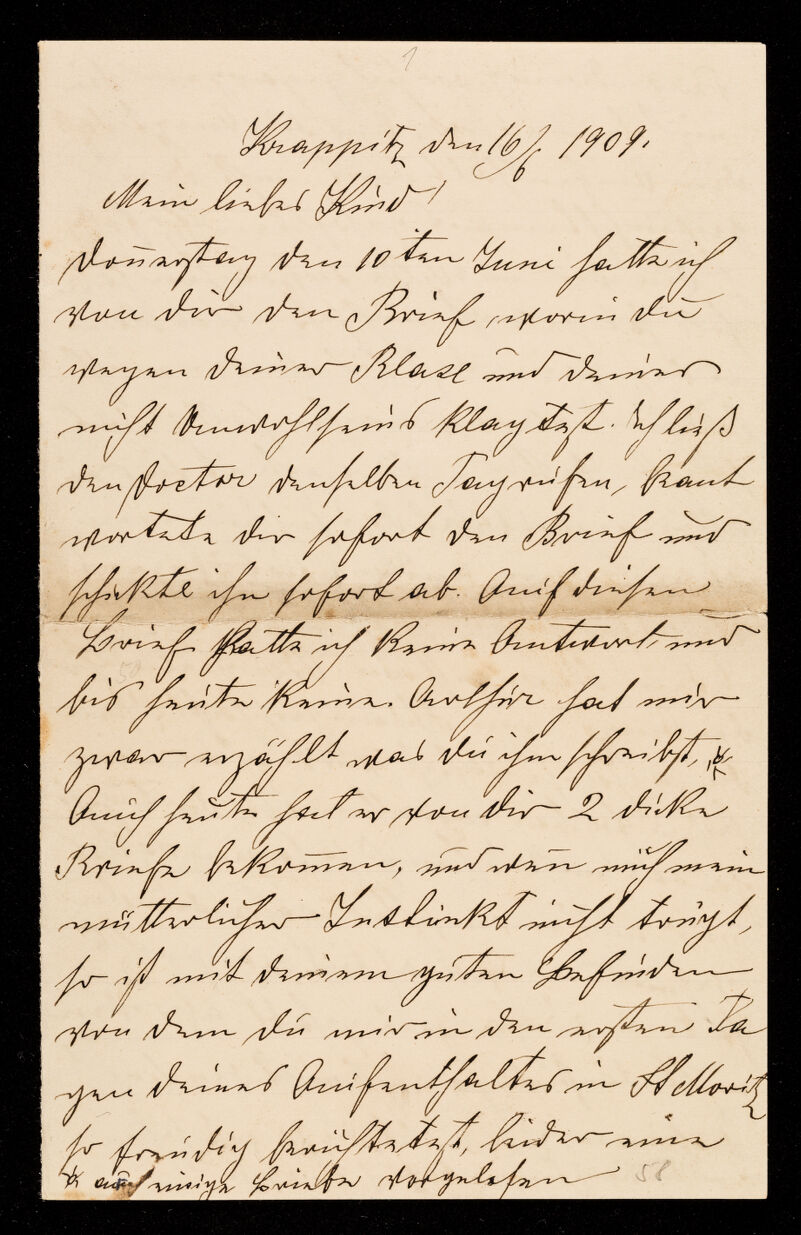 1
Krappitz den 16/6 1909.
Mein liebes Kind!
Donnerstag den 10ten Juni hatte ich
von dir den Brief, worin du
wegen deiner Blase und deines
nicht Unwohlseins klagtest. Ich ließ
den Doctor denselben Tag rufen, beant
wortete dir sofort den Brief und
schickte ihn sofort ab. Auf diesen
Brief hatte ich keine Antwort, und
bis heute keine. Arthur hat mir
zwar erzählt was du ihm schreibst,
Auch heute hat er von dir 2 dicke
Briefe bekommen, und wenn mich mein
mütterlicher Instinkt nicht trügt,
so ist mit deinem guten Befinden
von dem du mir in den ersten Ta
gen deines Aufenthaltes in St Moritz
so freudig berichtetest, leider eine
auch einige Briefe vorgelesen 58